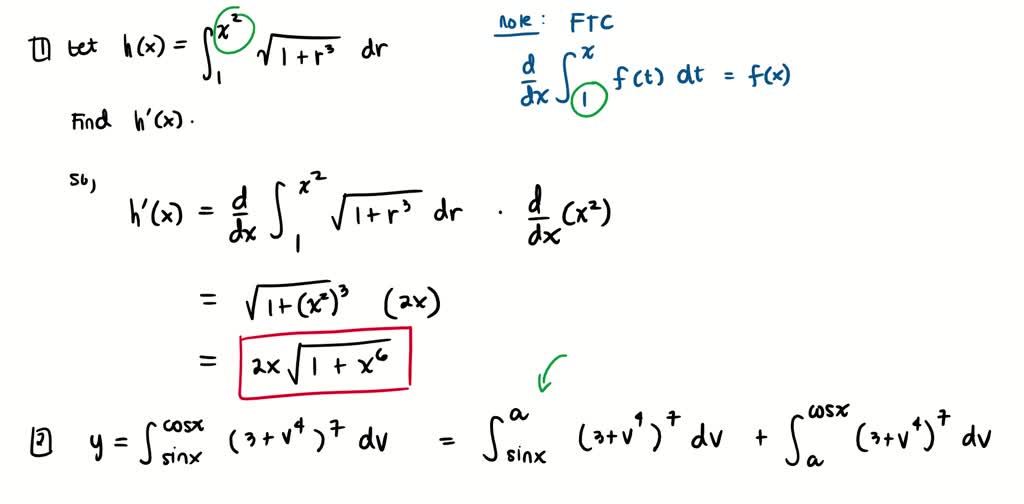 1 Let h(x) = ∫₁^{x²} √(1+r³) dr
Note: FTC
d/dx ∫₁^x f(t) dt = f(x)
Find h'(x).
So,
h'(x) = d/dx ∫₁^{x²} √(1+r³) dr · d/dx (x²)
= √(1+(x²)³) (2x)
= 2x√(1+x⁶)
2 y = ∫_{sinx}^{cosx} (3+v⁴)⁷ dv = ∫_{sinx}^{a} (3+v⁴)⁷ dv + ∫_{a}^{cosx} (3+v⁴)⁷ dv